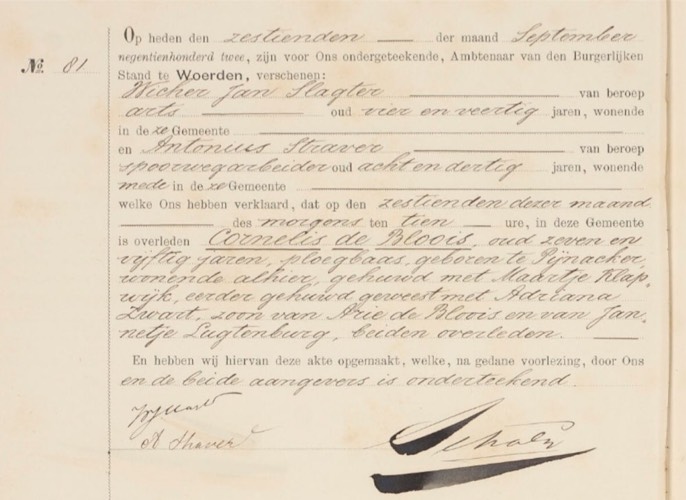 Op heden den zestienden der maand September
negentienhonderd twee, zijn voor Ons ondergeteekende, Ambtenaar van den Burgerlijken
No. 81
Stand te Woerden, verschenen:
Wicher Jan Slagter van beroep
arts oud vier en veertig jaren, wonende
in de ze Gemeente
en Antonius Straver van beroep
spoorwegarbeider oud acht en dertig jaren, wonende
mede in de ze Gemeente
welke Ons hebben verklaard, dat op den zestienden dezer maand
des morgens ten tien ure, in deze Gemeente
is overleden Cornelis de Bloois, oud zeven en
vijftig jaren, ploegbaas, geboren te Pijnacker,
wonende alhier, gehuwd met Maartje Klap-
wijk, eerder gehuwd geweest met Adriana
Zwart, zoon van Arie de Bloois en van Jan-
netje Lugtenburg, beiden overleden.
En hebben wij hiervan deze akte opgemaakt, welke, na gedane voorlezing, door Ons
en de beide aangevers is onderteekend.
A Straver